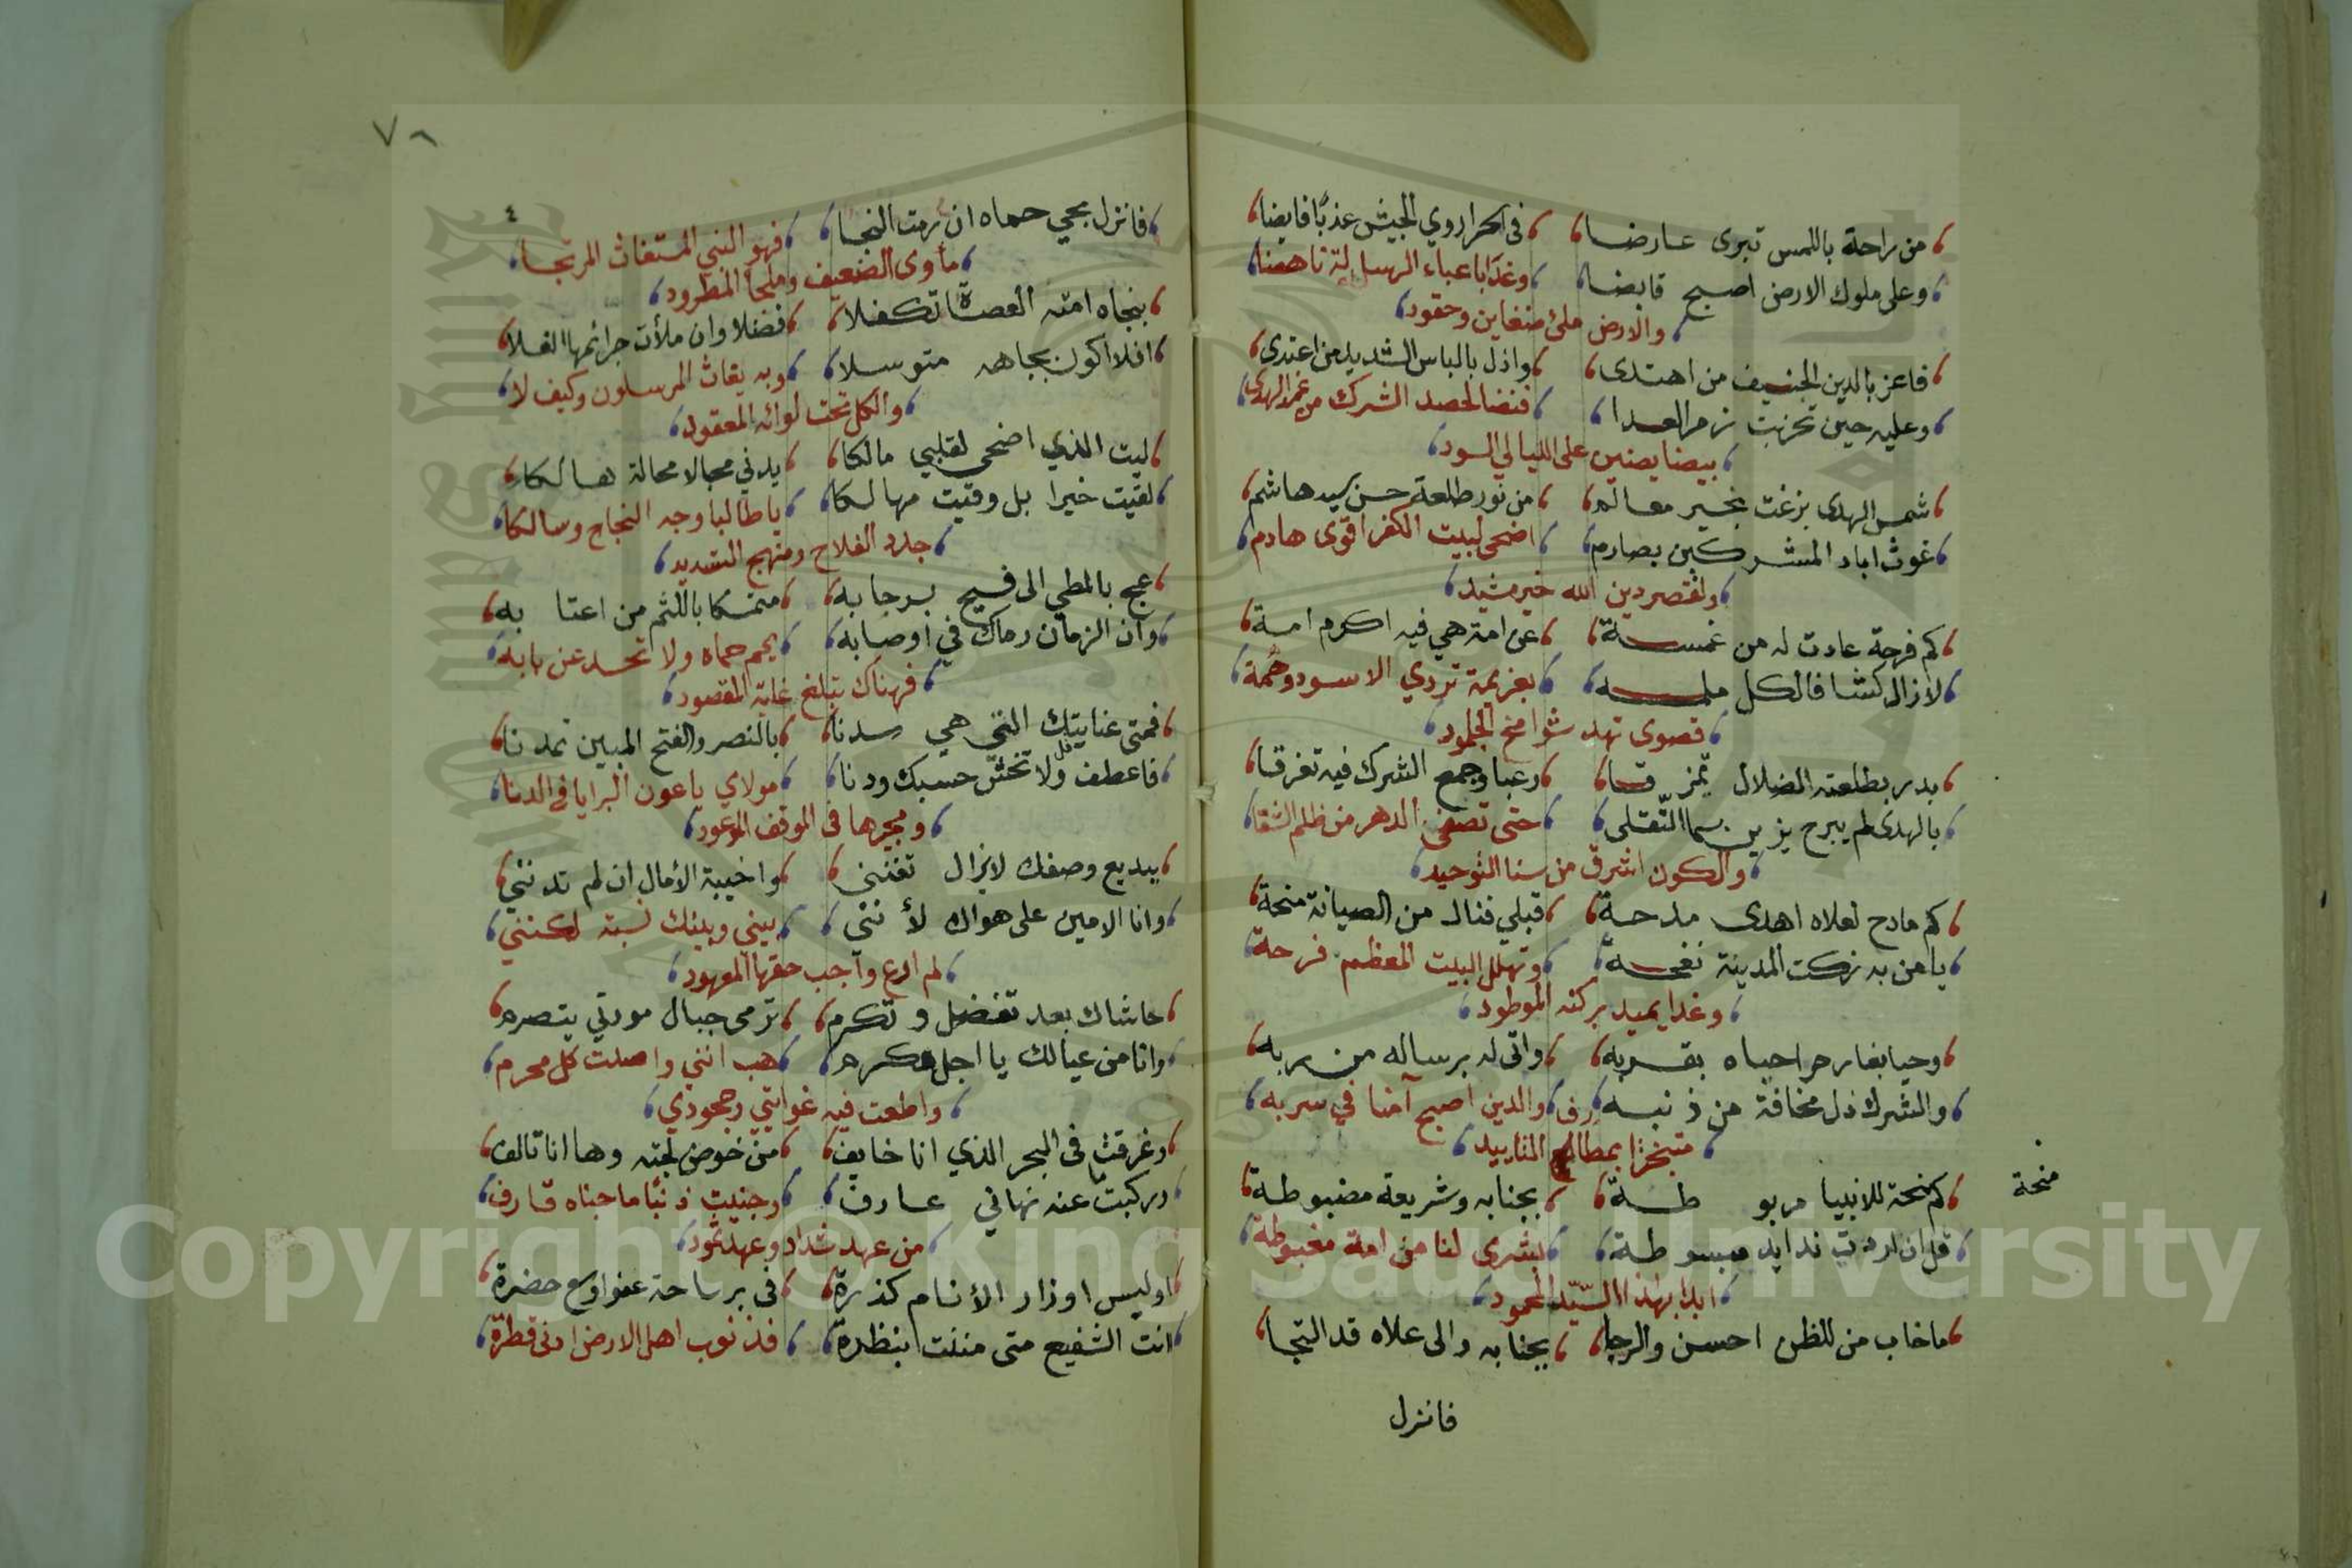 من راحة باللمس تبرى عارضا في الحر اروي الجيش عذبا فايضا
وعلى ملوك الارض اصبح قابضا وغدا باعباء الرسالة ناهضا
والارض ملئ ضغاين وحقود
فاعز بالدين الحنيف من اهتدى واذل بالباس الشديد من اعتدى
وعليه حين تحزبت زمر العدا فنضا لحصد الشرك من غمد الهدى
بيضا يضئن على الليالي السود
شمس الهدى بزغت بخير معالم من نور طلعة حسن سيد هاشم
غوث اباد المشركين بصارم اضحى لبيت الكفر اقوى هادم
ولقصر دين الله خير مشيد
كم فرجة عادت له من غمة عن امة هي فيه اكرم امة
لازال كشافا لكل ملمة بعزيمة تردي الاسود وهمة
قصوى تهد شوامخ الجلمود
بدر بطلعته الضلال تمزقا رعبا وجمع الشرك فيه تفرقا
بالهدى لم يبرح يزين سما التقى حتى تصفى الدهر من ظلم الشقا
والكون اشرق من سنا التوحيد
كم مادح لعلاه اهدى مدحة قبلي فنال من الصيانة منحة
يا من به زكت المدينة نفحة وتهلل البيت المعظم فرحة
وغدا يميد بركنه الموطود
وحيا بغار حراحباه بقربه واتى له برساله من ربه
والشرك ذل مخافة من ذنبه والدين اصبح آمنا في سربه
متبخترا بمطالع التاييد
كم منحة للانبيا مربوطة بجنابه وشريعة مضبوطة
منحة
قل ان اردت ندا يد مبسوطة بشرى لنا من امة مغبوطة
ابدا بهذا السيد المحمود
ما خاب من للظن احسن والرجا بجنابه والى علاه قد التجا
فانزل
٧٨
فانزل بحي حماه ان رمت النجا فهو النبي المستغاث المرتجا
مأوى الضعيف وملجأ المطرود
بنجاه امته العصاة تكفلا فضلا وان ملأت جرائمها الفلا
افلا اكون بجاهه متوسلا وبه يغاث المرسلون وكيف لا
والكل تحت لوائه المعقود
ليت الذي اضحى لقلبي مالكا يدني محبا لا محالة هالكا
لقيت خيرا بل وقيت مهالكا يا طالبا وجه النجاح وسالكا
جدد الفلاح ومنهج التسديد
عج بالمطي الى فسيح رحابه متمسكا باللثم من اعتابه
وان الزمان رماك في اوصابه يمم حماه ولا تحد عن بابه
فهناك تبلغ غاية المقصود
فمتى عنايتك التي هي سدنا بالنصر والفتح المبين تمدنا
فاعطف وقل لا تخش حسبك ودنا مولاي يا عون البرايا في الدنا
ومجيرها في الموقف الموعود
ببديع وصفك لايزال تفنني واخيبة الأمال ان لم تدنني
وانا الامين على هواك لأنني بيني وبينك نسبة لكنني
لم ارع واجب حقها المعهود
حاشاك بعد تفضل وتكرم ترمى حبال مودتي بتصرم
وانا من عيالك يا اجل مكرم هب انني واصلت كل محرم
واطعت فيه غوايتي وجحودي
وغرقت في البحر الذي انا خايف من خوض لجته وها انا تالف
وركبت ما عنه نهاني عارف وجنيت ذنبا ما جناه قارف
من عهد شداد وعهد ثمود
اوليس اوزار الأنام كذرة في بر ساحة عفو اوسع حضرة
انت الشفيع متى مننت بنظرة فذنوب اهل الارض ادنى قطرة